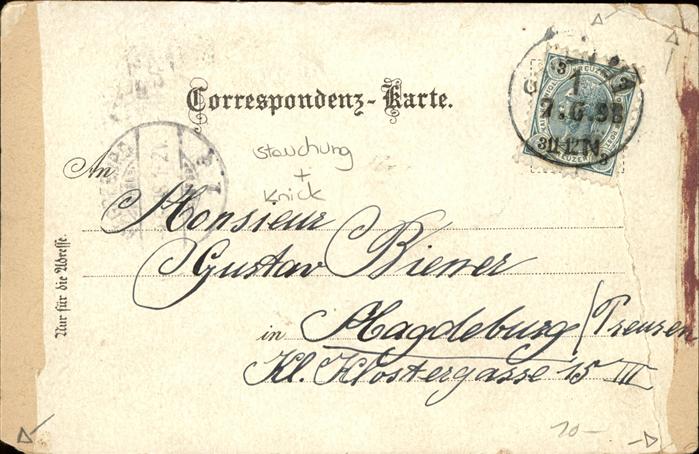 Correspondenz-Karte.
Stauchung
+
Knick
An
Monsieur
Gustav Biemer
in Magdeburg (Preussen
Kl. Klostergasse 15 III
Nur für die Adresse.
3
1
7.6.98
KREUZER
10-